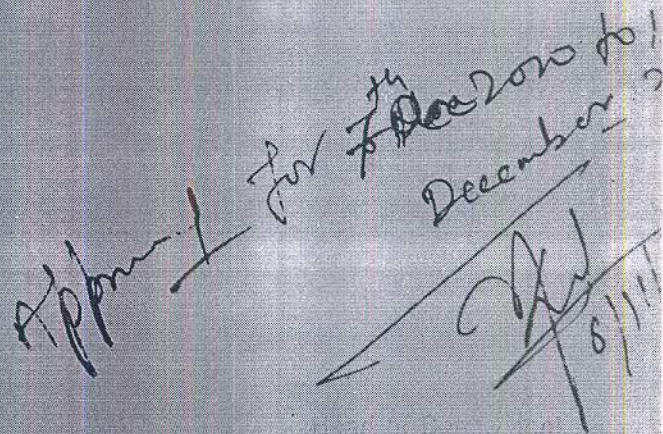 Approved for 7th Dec 2010 to
December
6/1/11